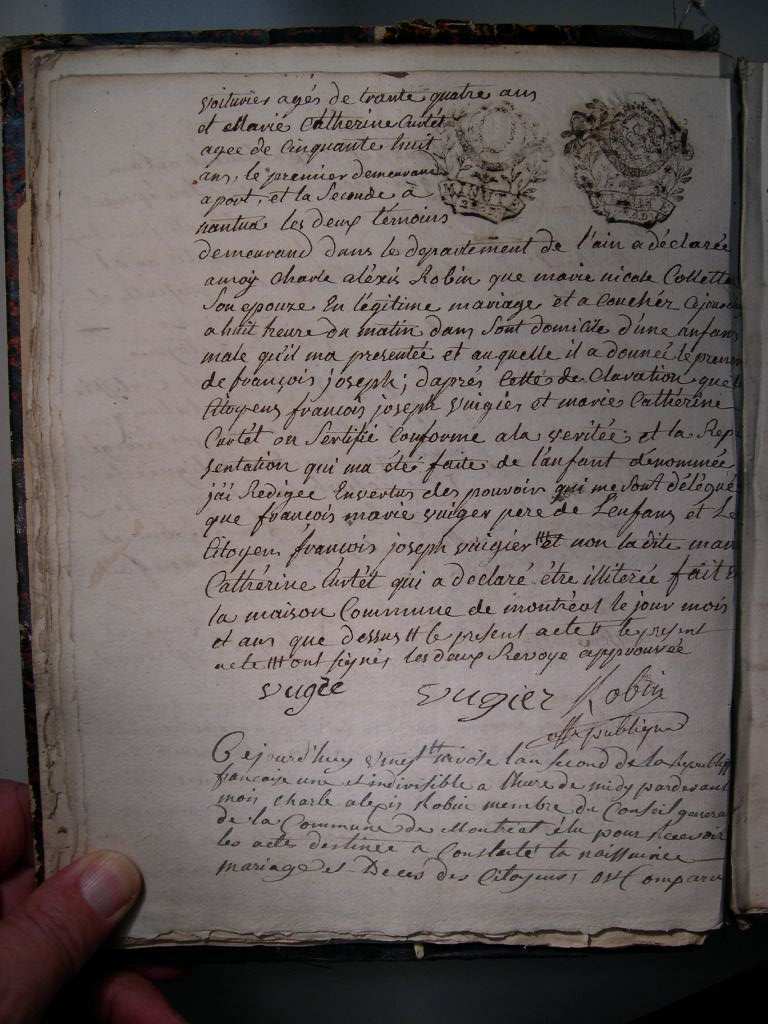 voiturier agés de trante quatre ans
et Marie Cathérine Curtét
agee de Cinquante huit
ans, le premier demeurand
a port, et la Seconde a
nantua les deux témoins
demeurand dans le département de l'ain a déclarée
amoy Charle aléxis Robin que marie nicole Collette
Son epouze En légitime mariage et a Couchér Cejourd
a huit heure du matin dans Sont domicile d'une anfans
male qu'il ma presentée et auquelle il a donneé le prenom
de françois joseph; daprés Cette de Claration que le
Citoyens françois joseph vuigier et marie Cathérine
Curtét on Sertifié Conforme a la veritée et la Rep
sentation qui ma été faite de l'anfant dénommée
j'ai Redigee Envertus des pouvoirs qui me Sont délégué
que françois marie vuiger pere de L'enfans et Le
Citoyens françois joseph vuigier et non la dite marie
Cathérine Curtét qui a declaré étre illiterée fait
la maison Commune de montréal le jour mois
et ans que dessus # le present acte # le present
acte ont signés les deux Renvoye approuvée
vugée vugier Robin
off publique
Cejourd'huy nivôse l'an second de la Republi
francaise une et indivisible a l'heure de midy pardevant
mois Charle alexis Robin membre du Conseil general
de la Commune de Montreal élu pour recevoir
les acte destinée a Constaté la naissance
mariage et Deces des Citoyens, est Comparu